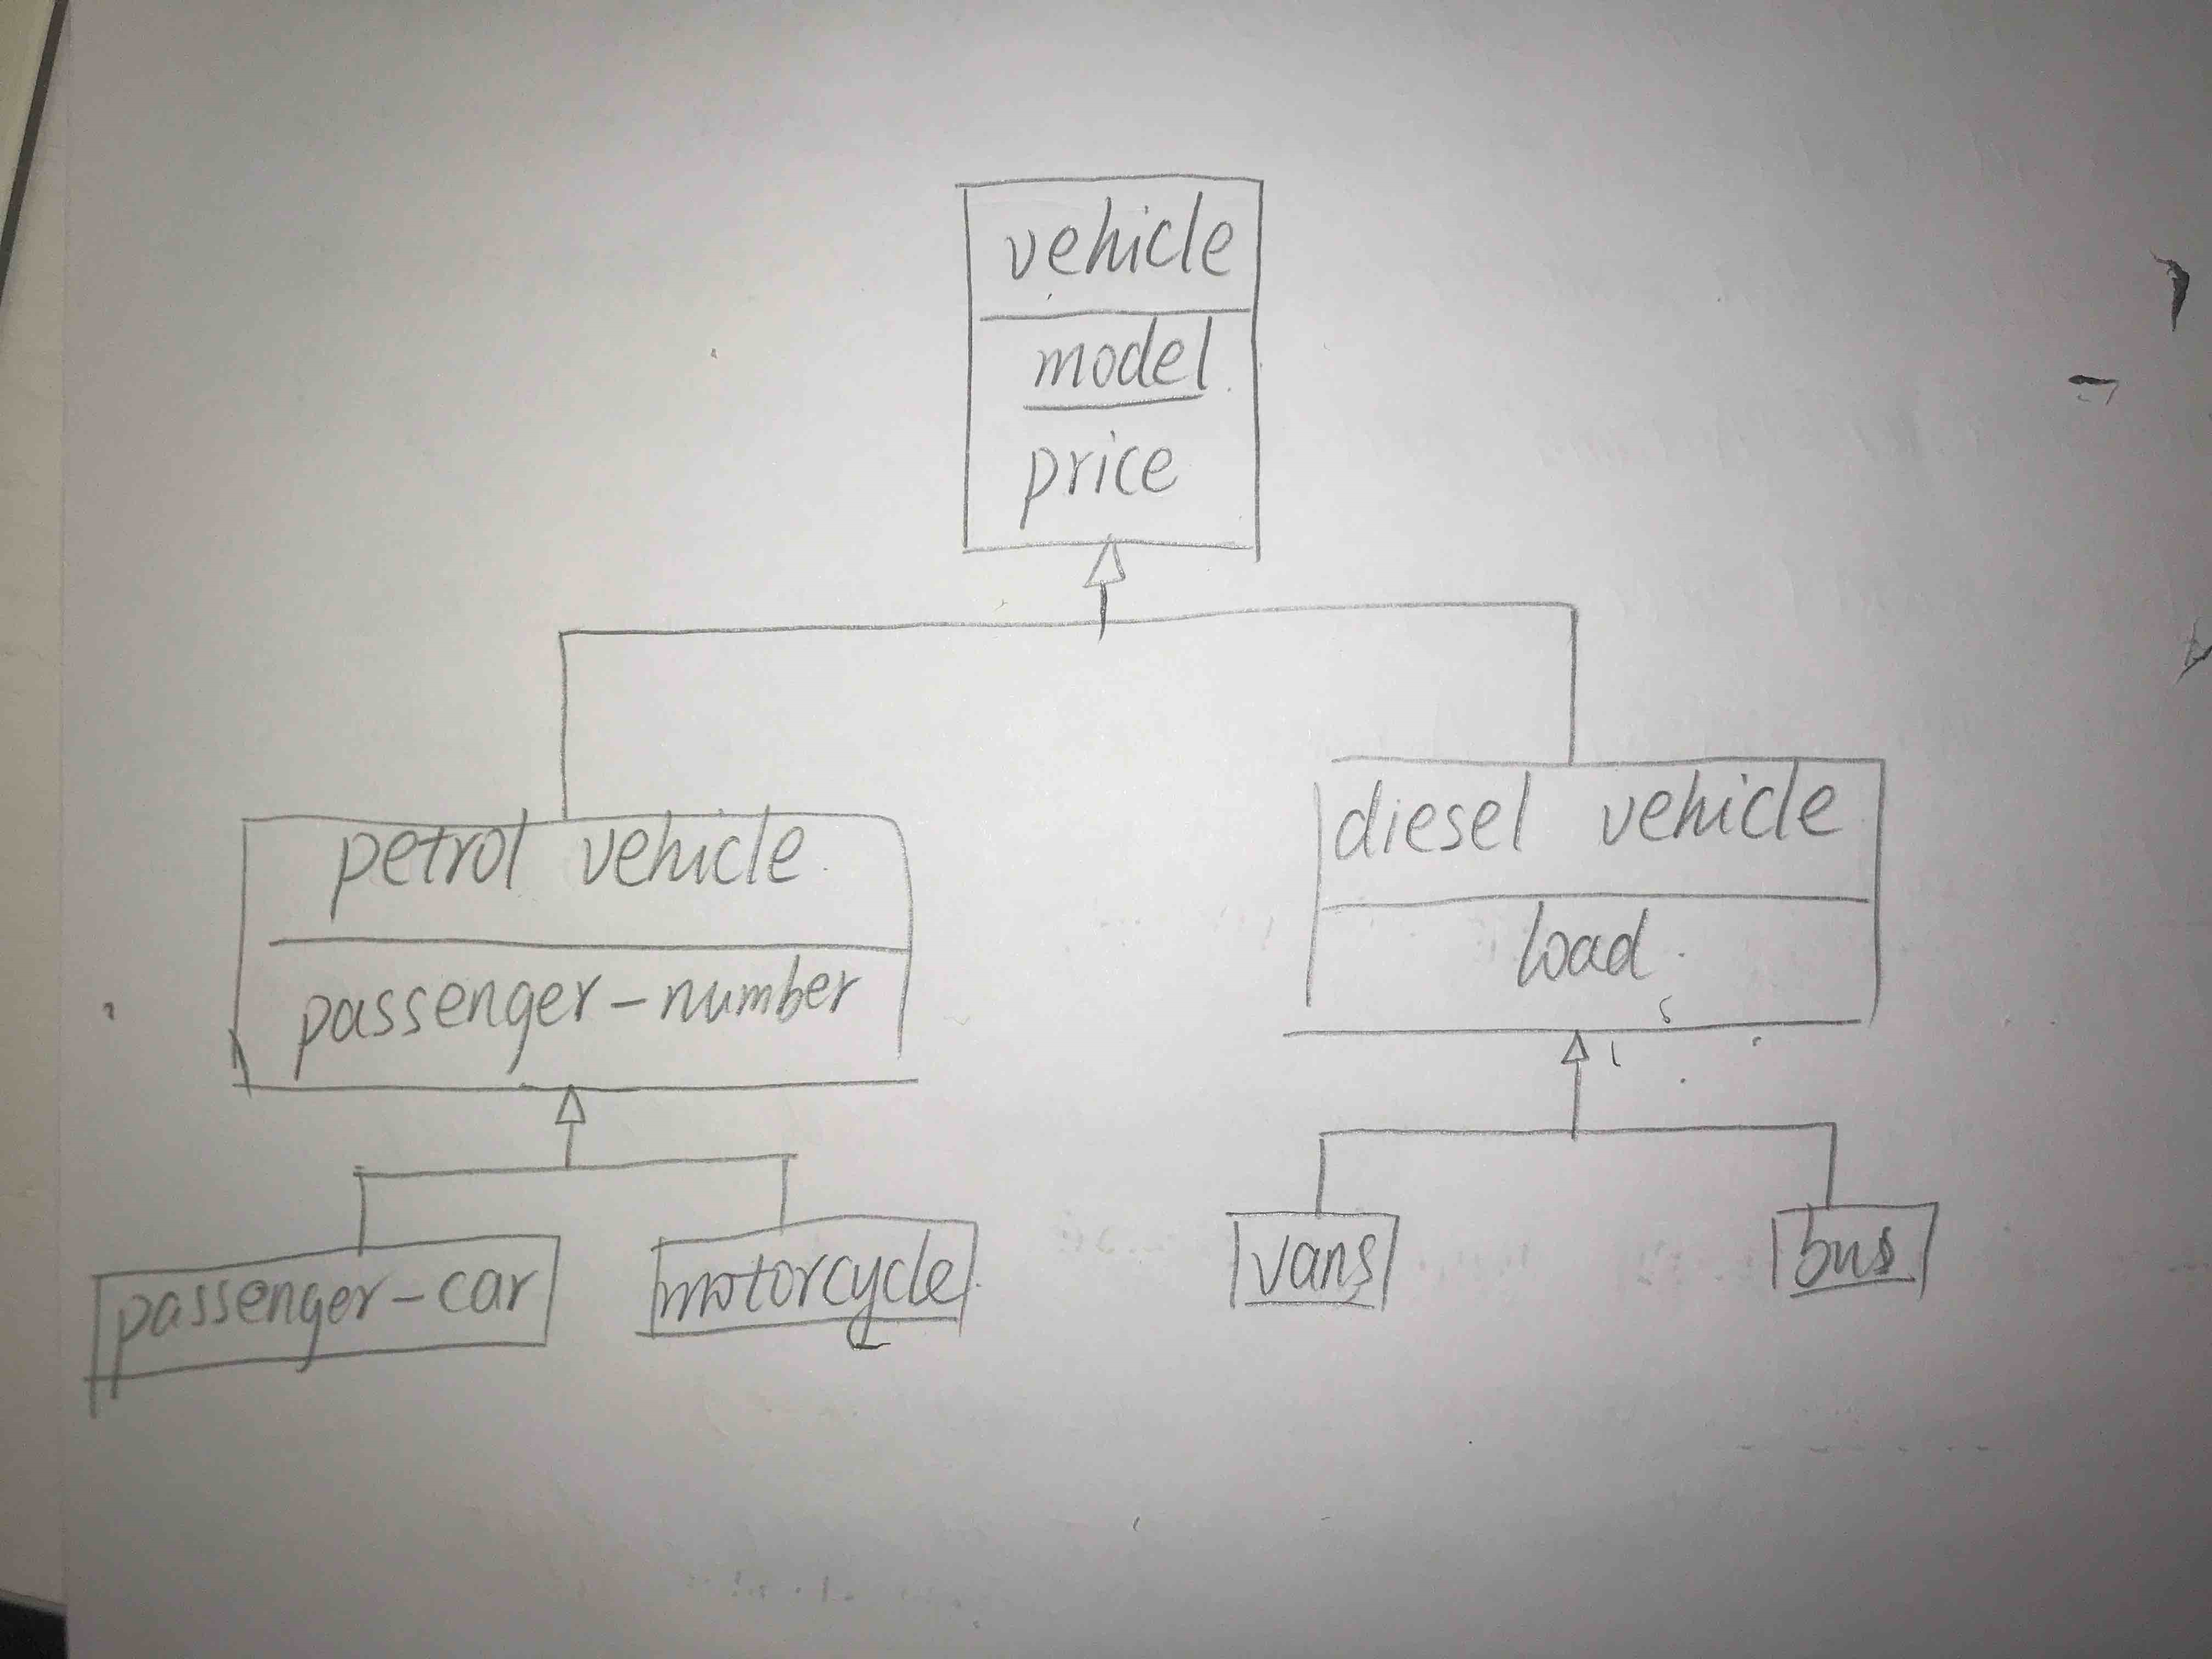 vehicle
model
price
petrol vehicle
passenger-number
diesel vehicle
load
passenger-car
motorcycle
vans
bus